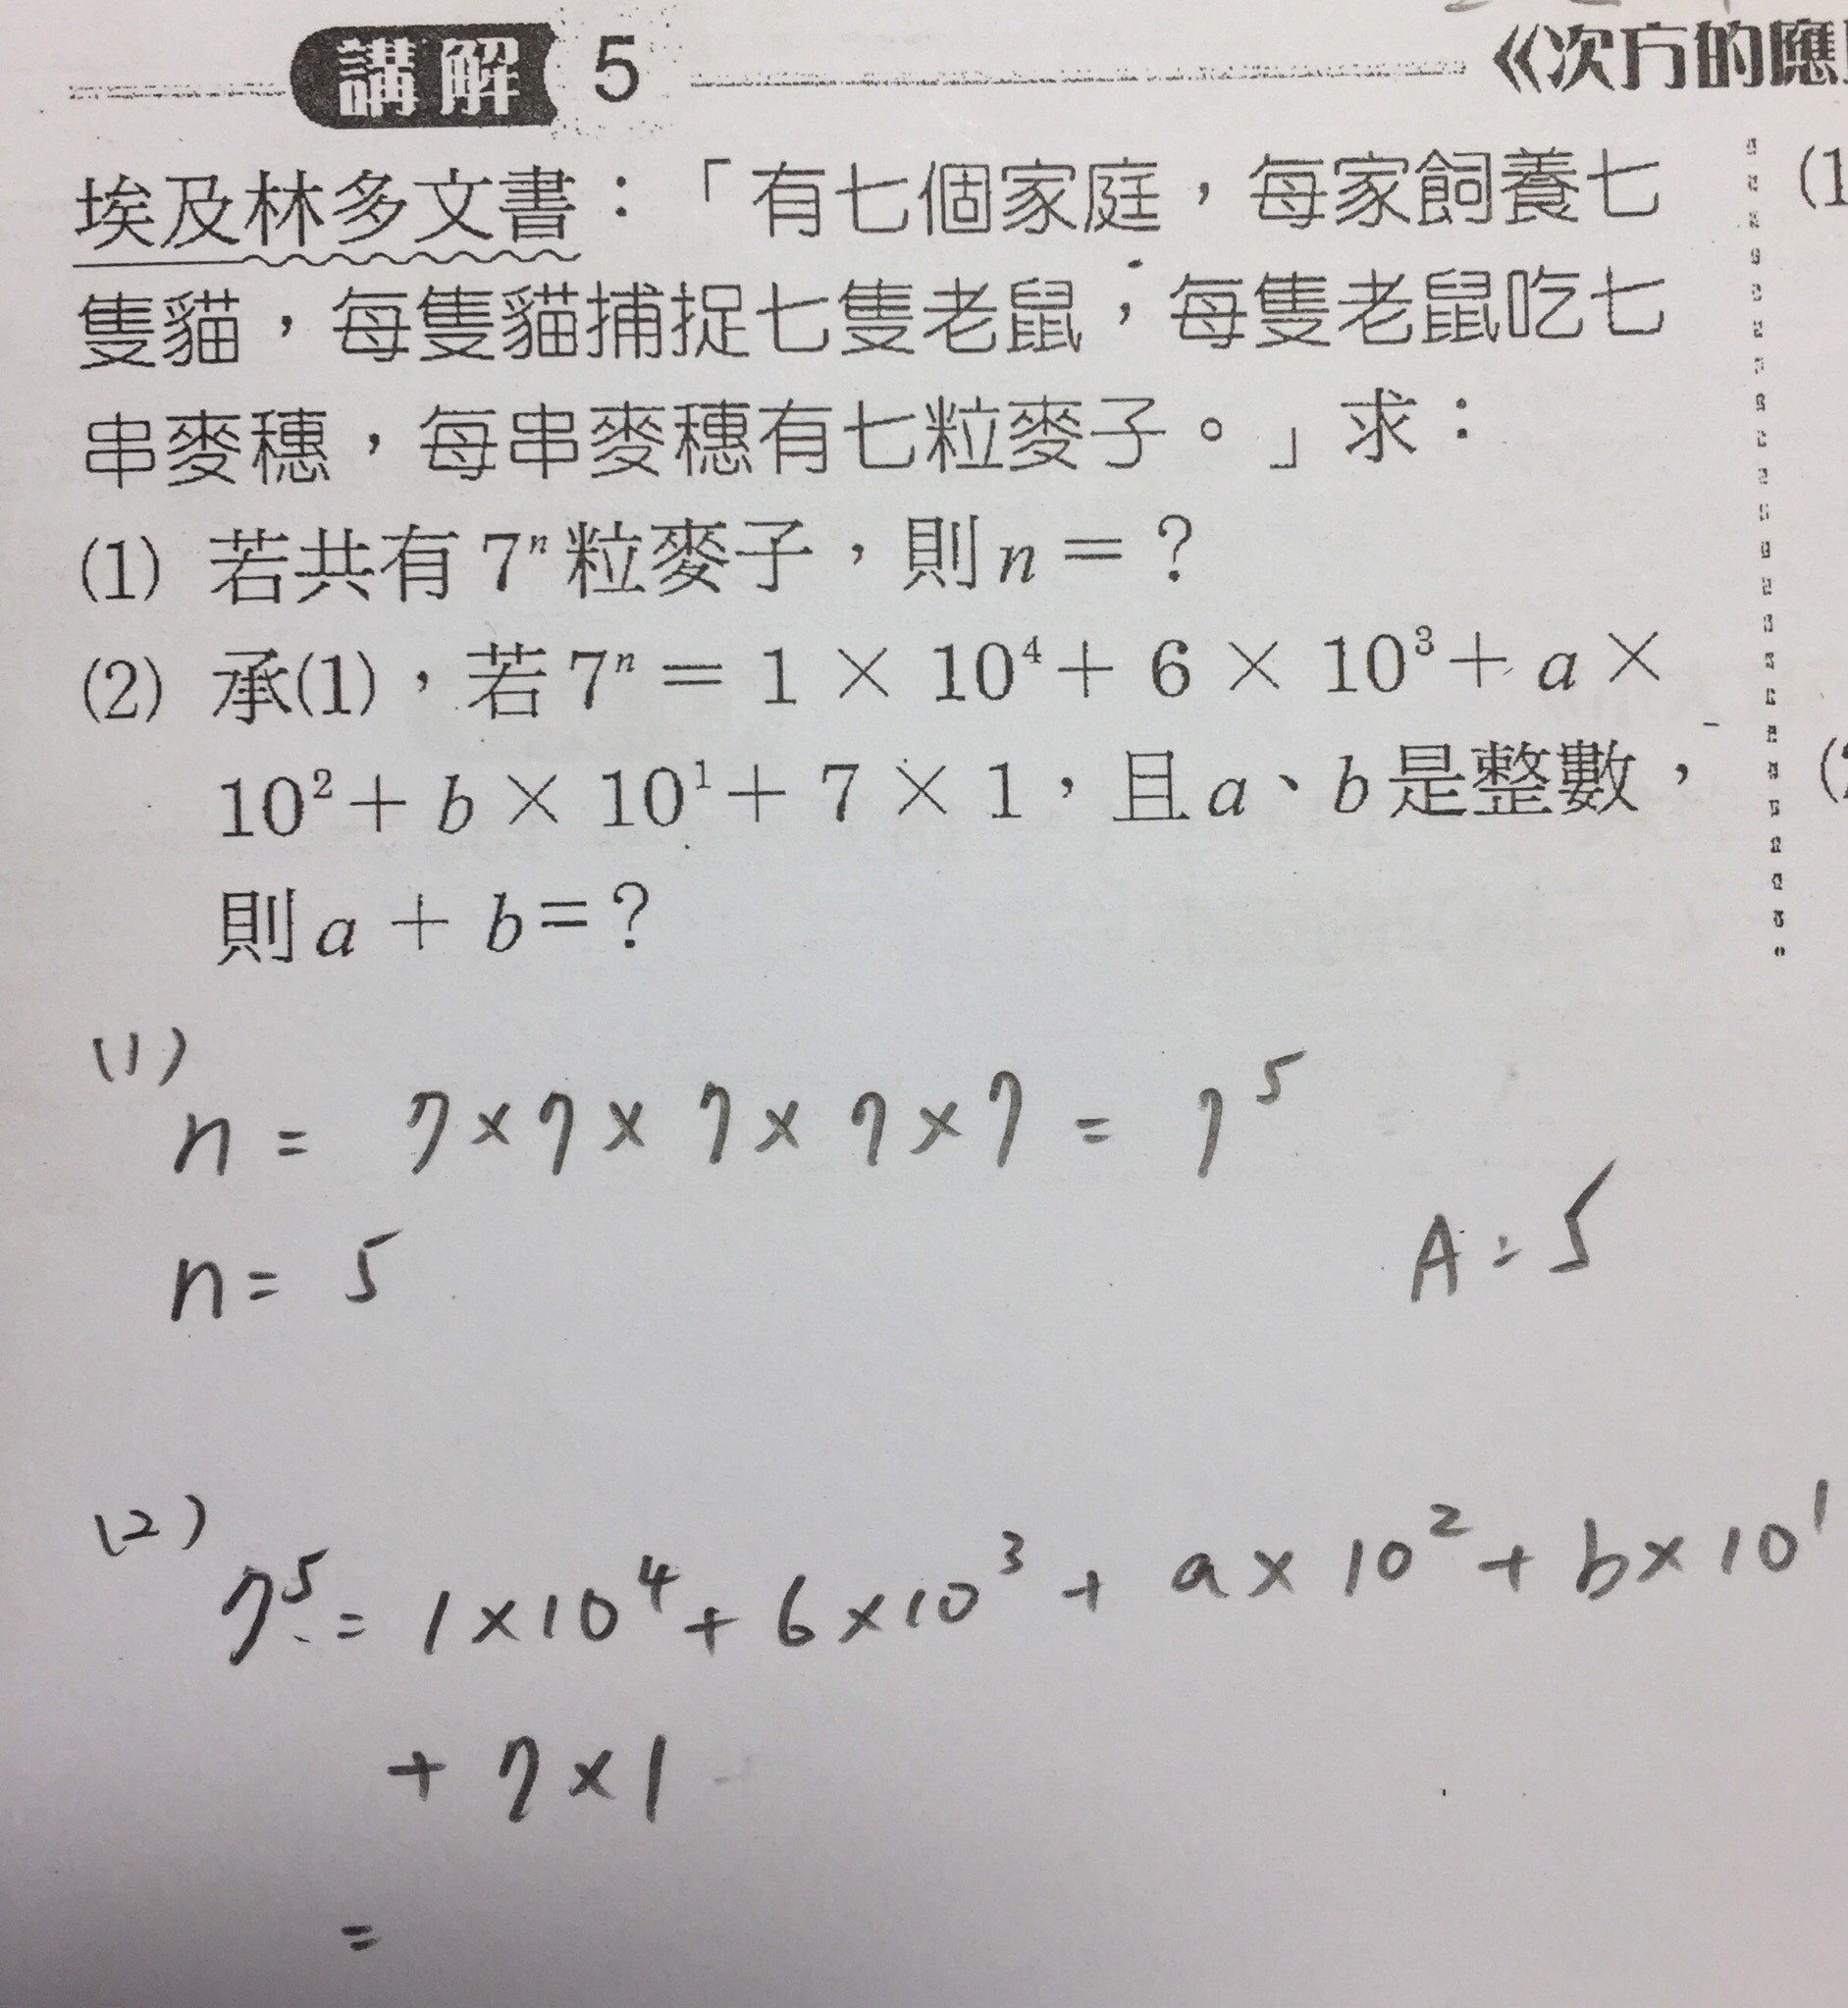 講解 5 《次方的應
埃及林多文書：「有七個家庭，每家飼養七
隻貓，每隻貓捕捉七隻老鼠，每隻老鼠吃七
串麥穗，每串麥穗有七粒麥子。」求：
(1) 若共有 7ⁿ 粒麥子，則 n = ？
(2) 承(1)，若 7ⁿ = 1 × 10⁴ + 6 × 10³ + a ×
10² + b × 10¹ + 7 × 1，且 a、b 是整數，
則 a + b = ？
(1)
n = 7 × 7 × 7 × 7 × 7 = 7⁵
n = 5
A = 5
(2)
7⁵ = 1 × 10⁴ + 6 × 10³ + a × 10² + b × 10¹
+ 7 × 1
=